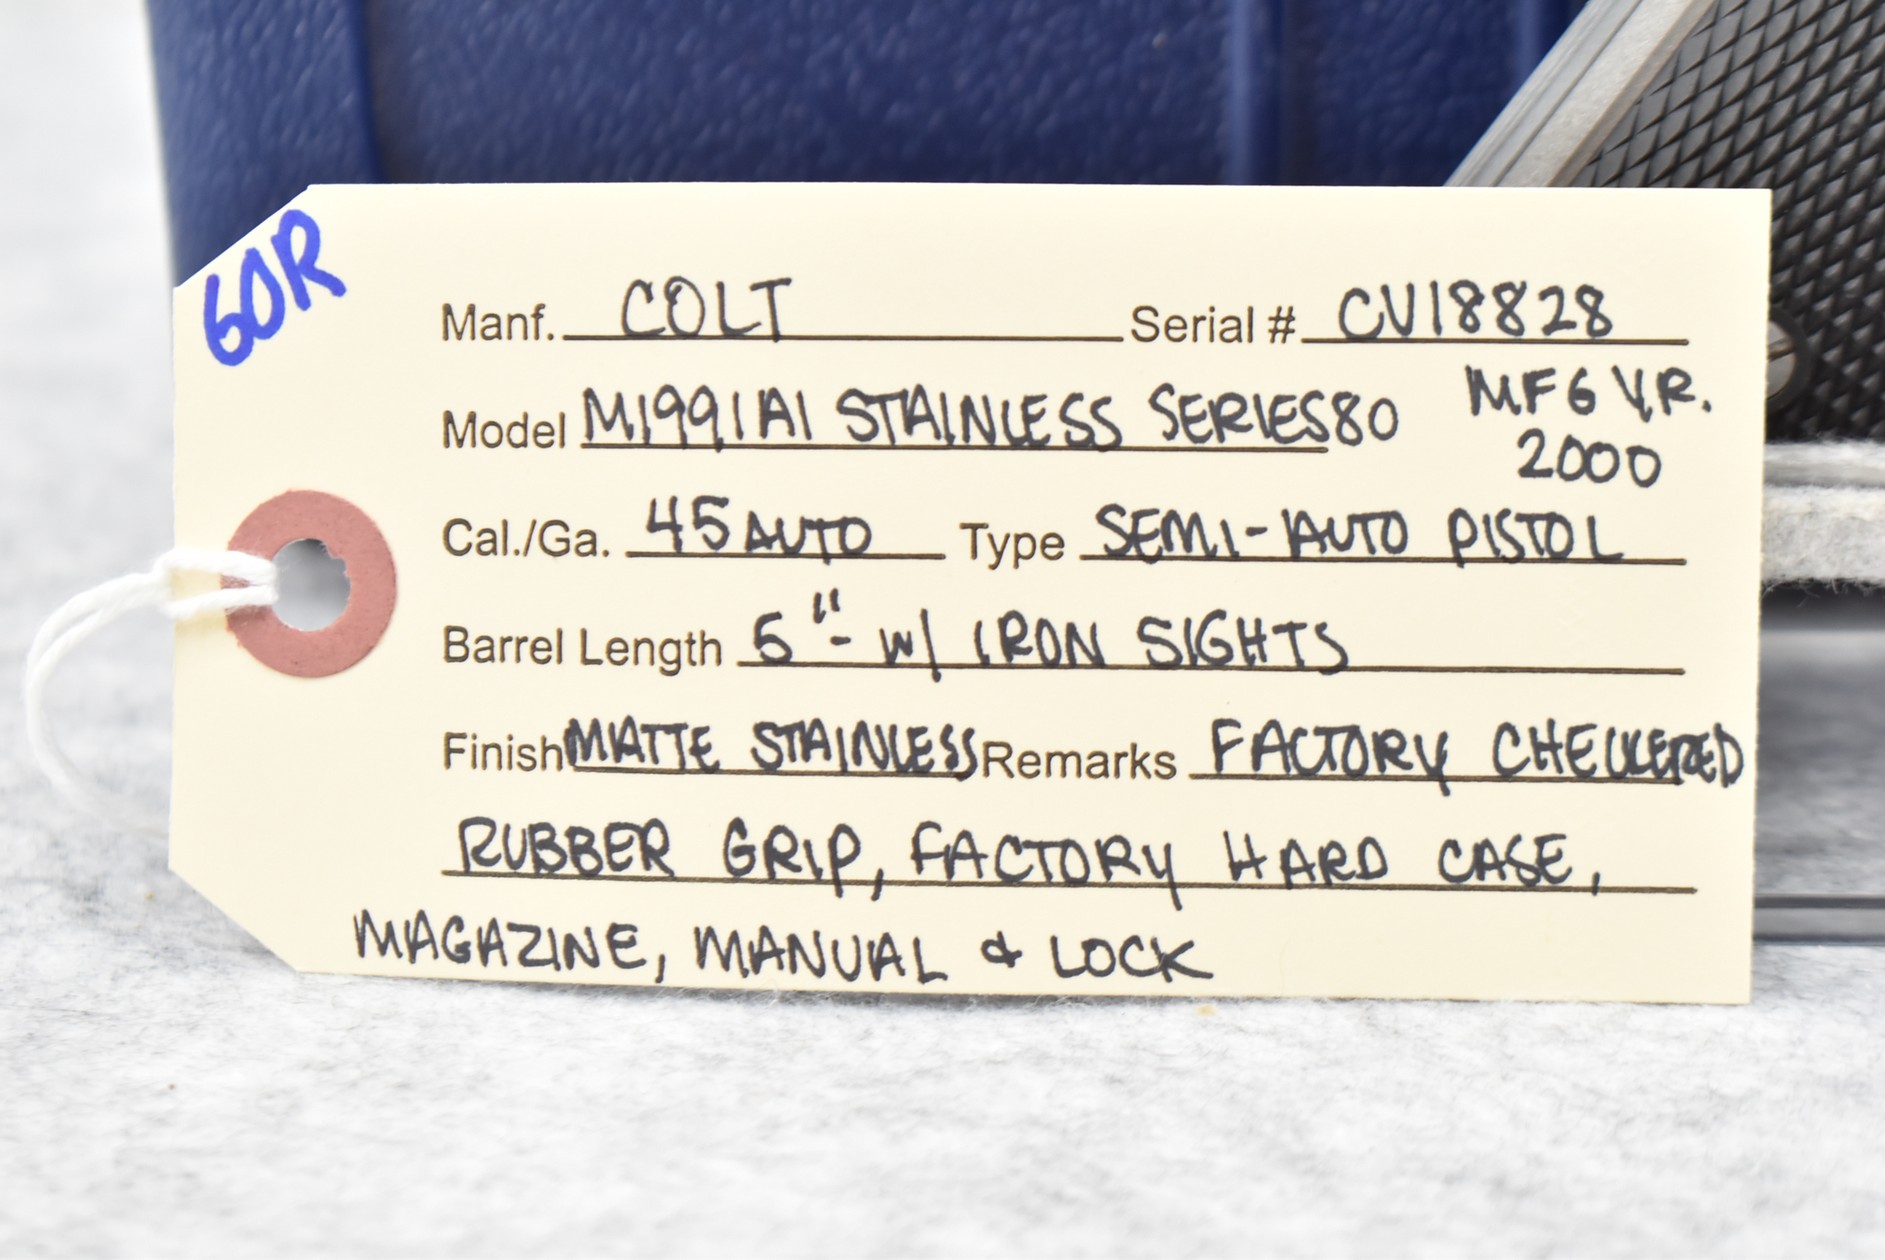 60R
Manf. COLT Serial # CV18828
Model M1991A1 STAINLESS SERIES 80 MFG YR.
2000
Cal./Ga. 45 AUTO Type SEMI-AUTO PISTOL
Barrel Length 5"- w/ IRON SIGHTS
Finish MATTE STAINLESS Remarks FACTORY CHECKERED
RUBBER GRIP, FACTORY HARD CASE,
MAGAZINE, MANUAL & LOCK